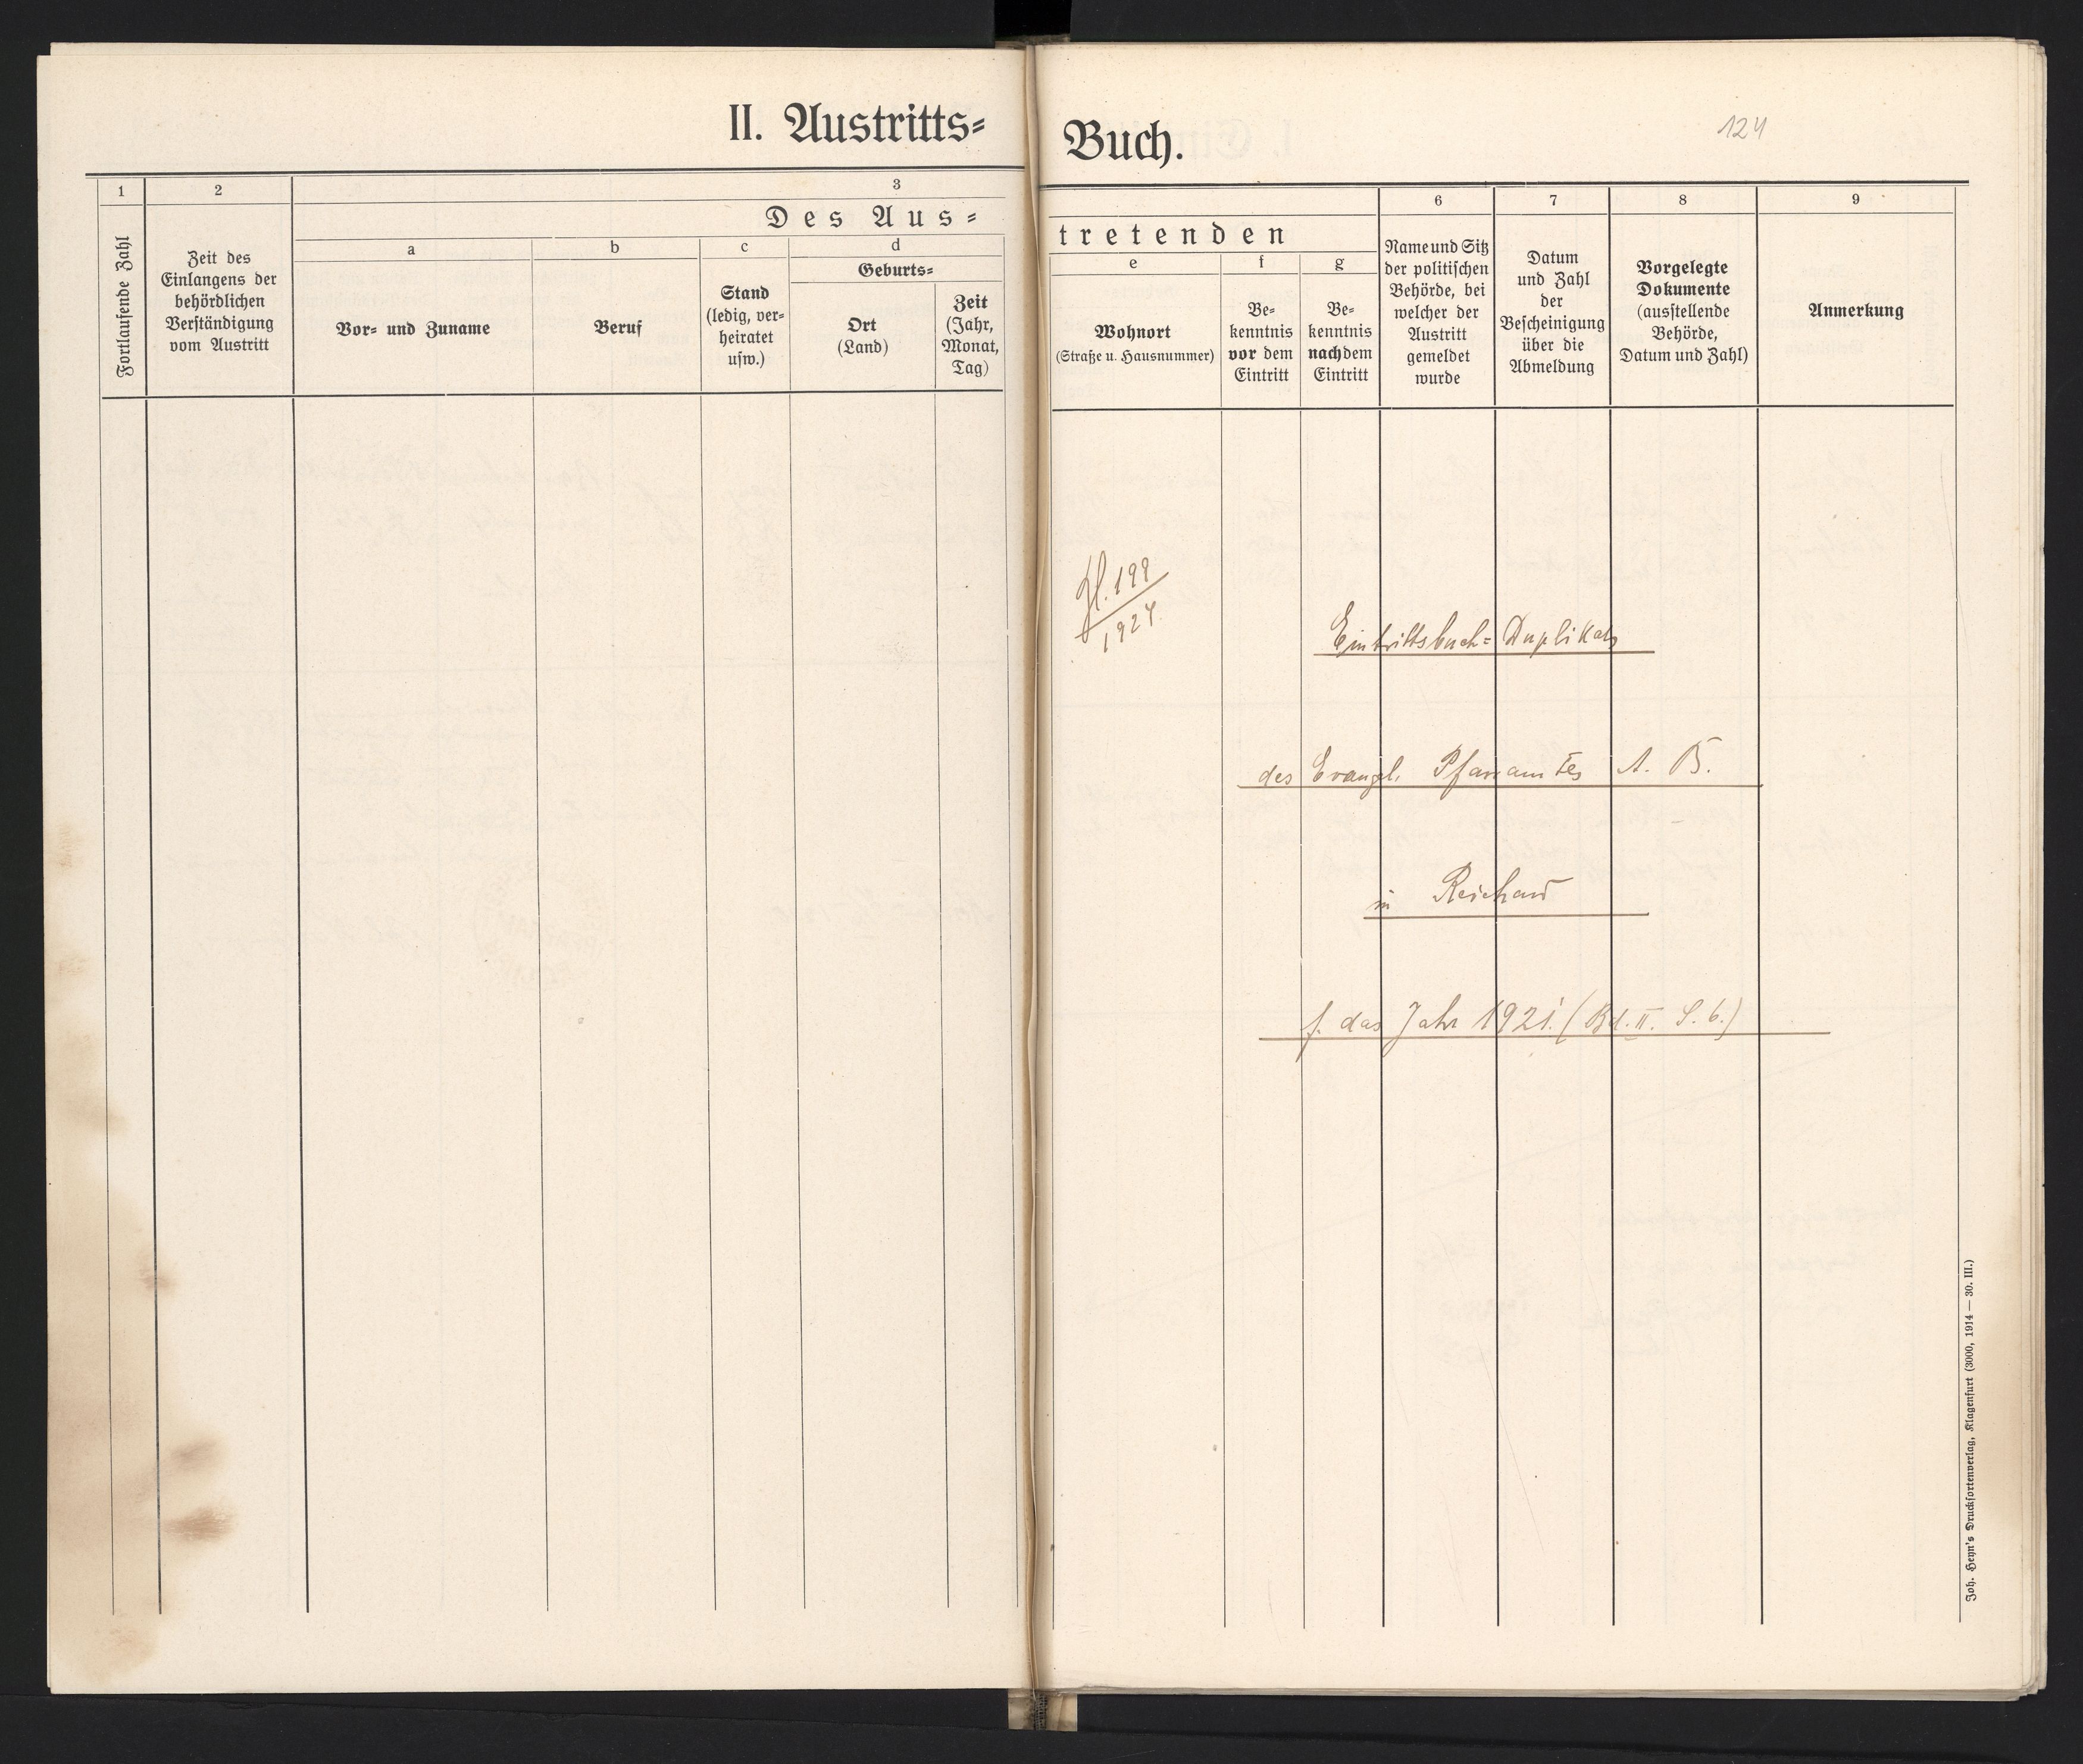 II. Austritts=
1
2
3
Des Aus=
Fortlaufende Zahl
Zeit des
Einlangens der
behördlichen
Verständigung
vom Austritt
a
Vor= und Zuname
b
Beruf
c
Stand
(ledig, ver=
heiratet
usw.)
d
Geburts=
Ort
(Land)
Zeit
(Jahr,
Monat,
Tag)
Buch.
124
tretenden
e
Wohnort
(Straße u. Hausnummer)
f
Be=
kenntnis
vor dem
Eintritt
g
Be=
kenntnis
nach dem
Eintritt
6
Name und Sitz
der politischen
Behörde, bei
welcher der
Austritt
gemeldet
wurde
7
Datum
und Zahl
der
Bescheinigung
über die
Abmeldung
8
Vorgelegte
Dokumente
(ausstellende
Behörde,
Datum und Zahl)
9
Anmerkung
Zl. 199
1924.
Eintrittsbuch=Duplikat
des Evangl. Pfarramtes A. B.
in
f. das Jahr 1921. (Bd. II. S. 6.)
Joh. Heyn's Drucksortenverlag, Klagenfurt (3000, 1914 — 30. III.)